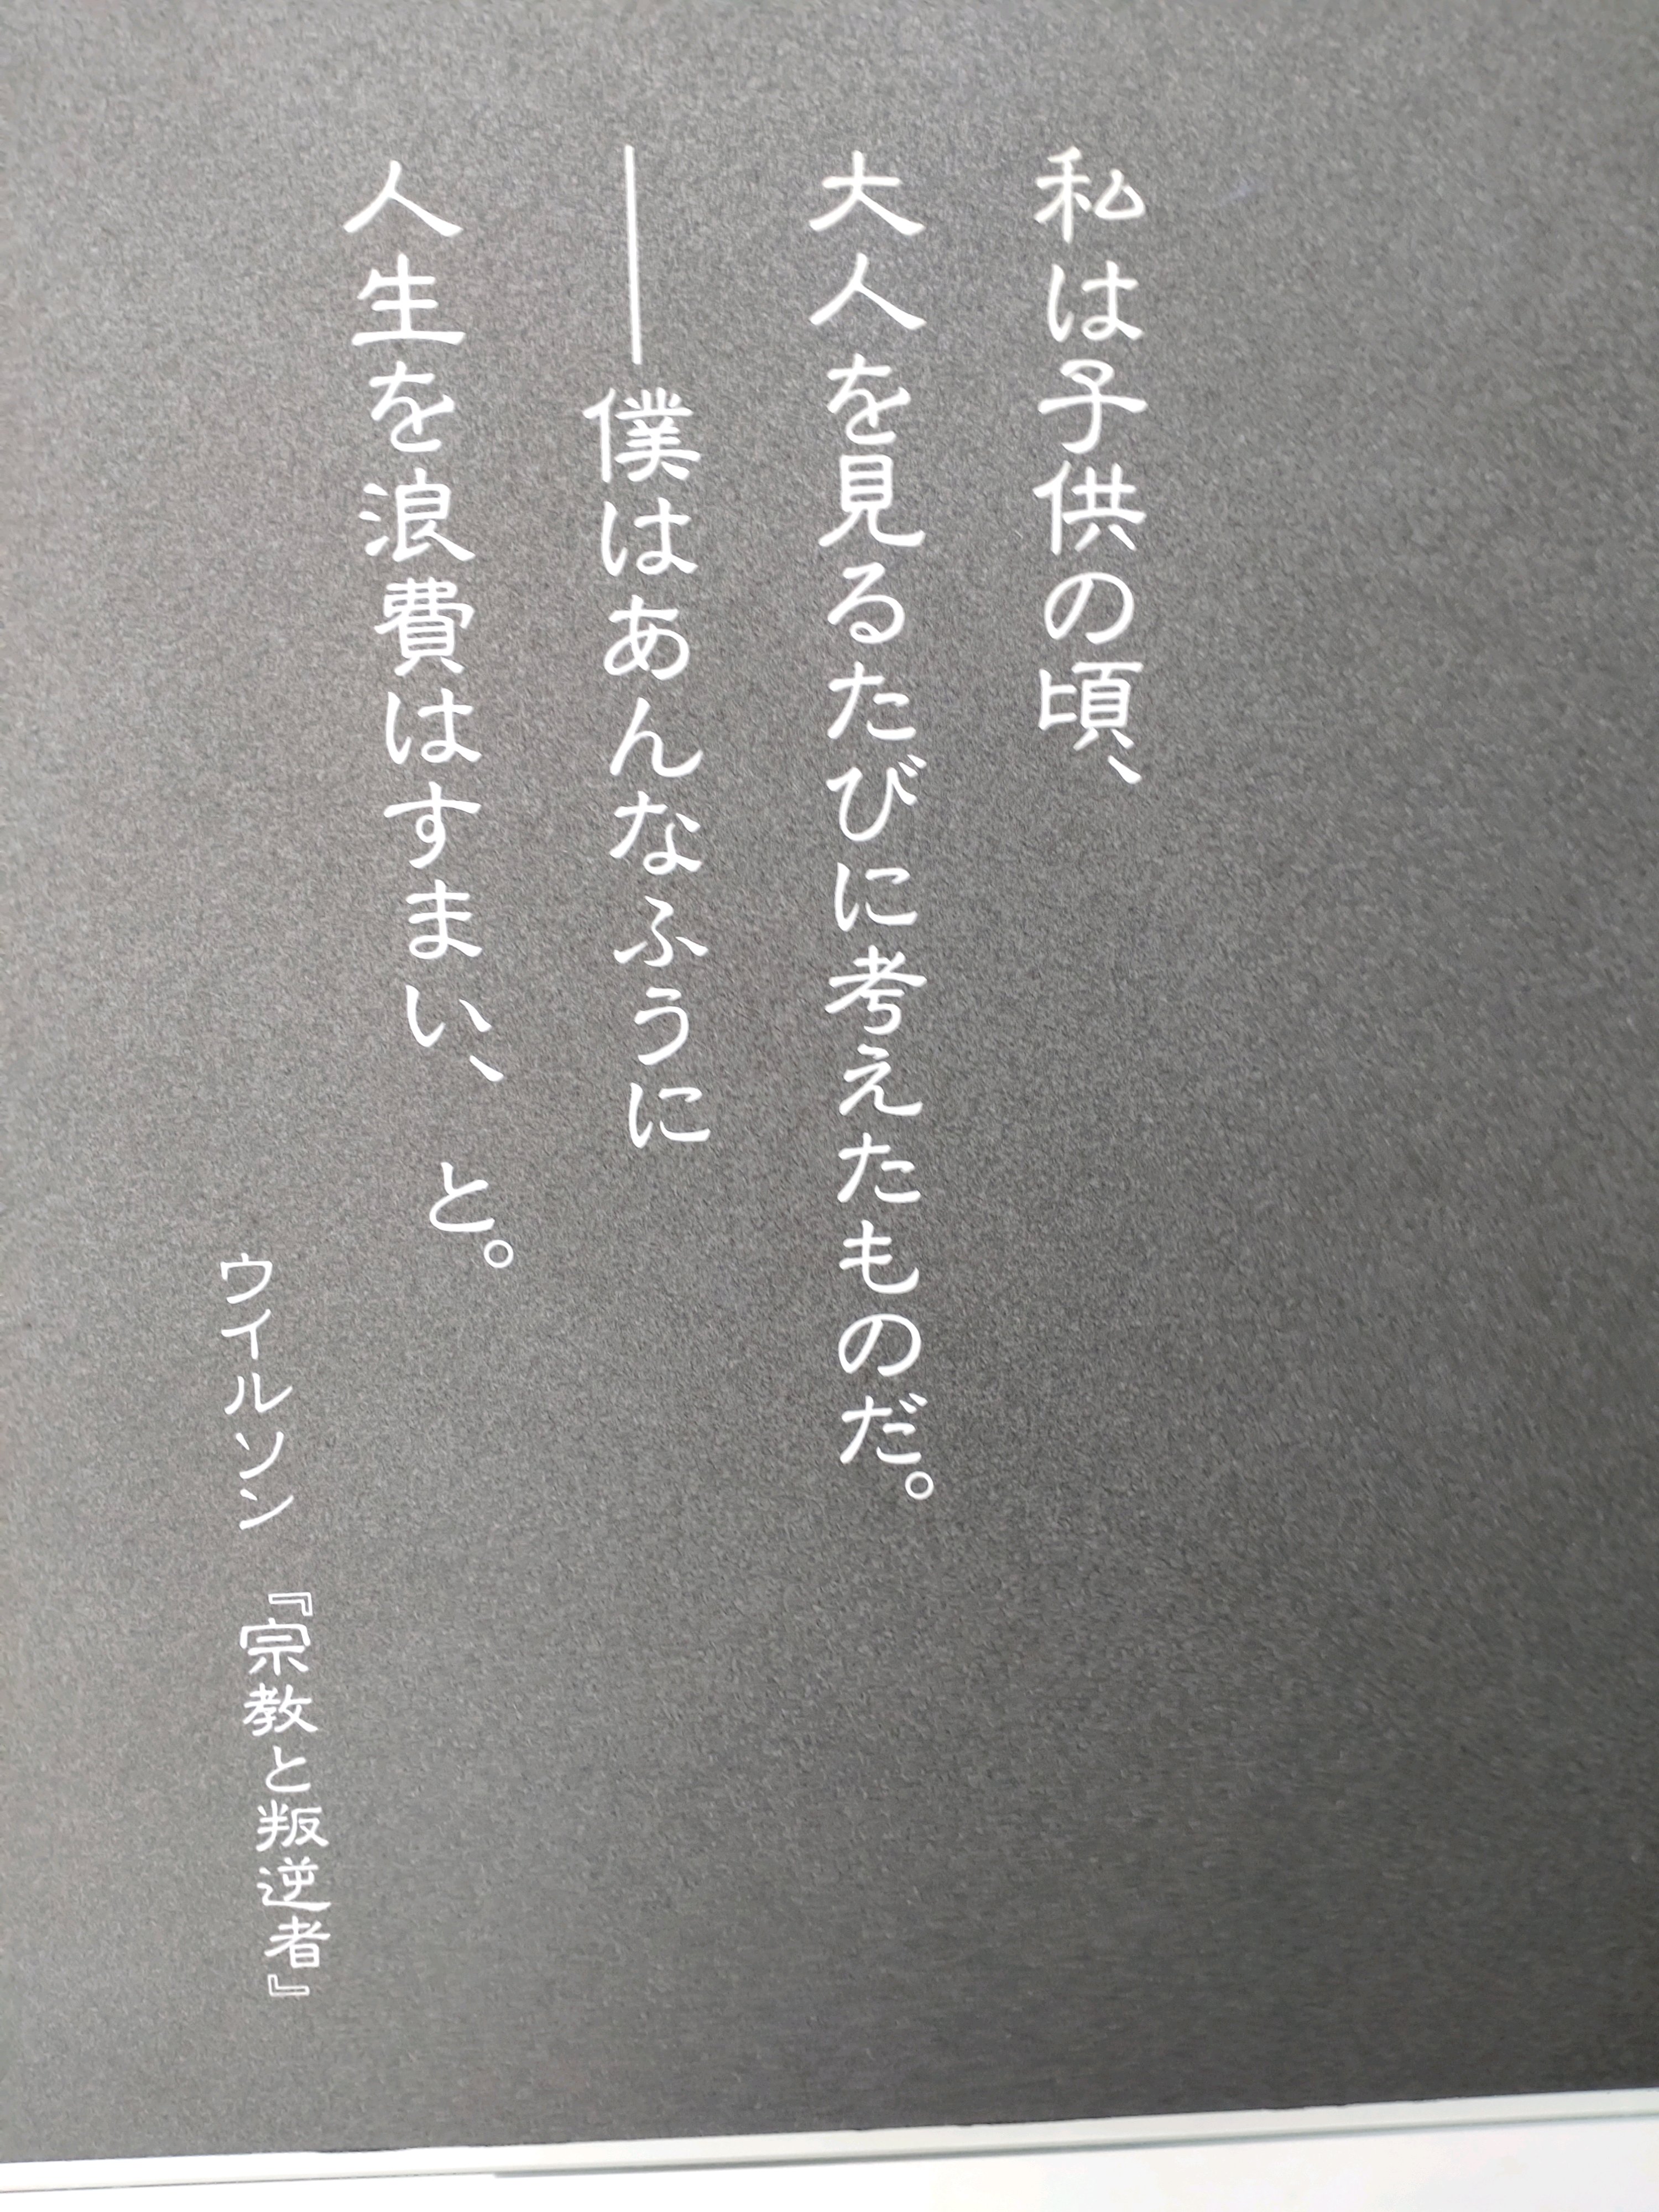 私は子供の頃、
大人を見るたびに考えたものだ。
――僕はあんなふうに
人生を浪費はすまい、と。
ウイルソン『宗教と叛逆者』